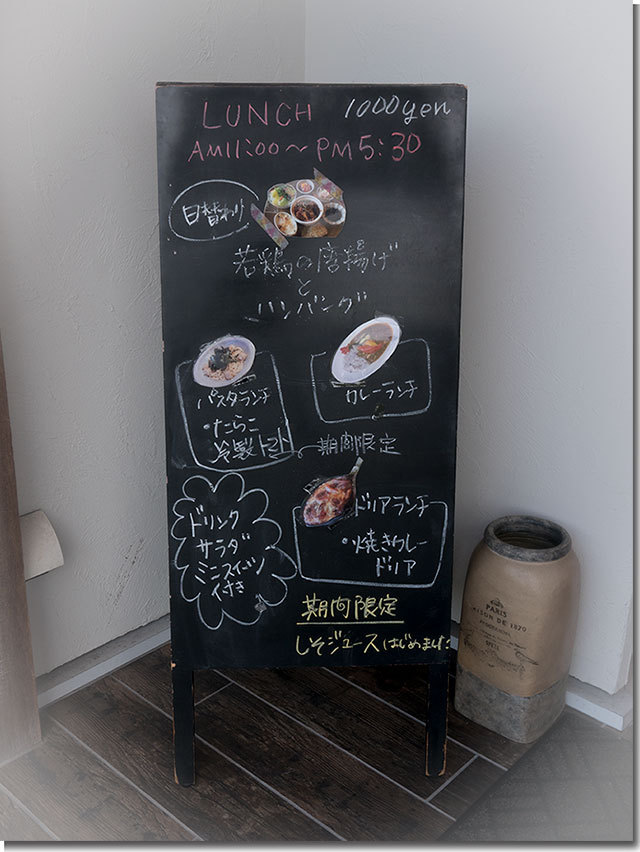 LUNCH 1000yen
AM11:00〜PM5:30
日替わり
若鶏の唐揚げ
と
ハンバーグ
パスタランチ
・たらこ
冷製トマト
期間限定
カレーランチ
ドリンク
サラダ
ミニスイーツ
付き
ドリアランチ
・焼きカレー
ドリア
期間限定
しそジュースはじめました
PARIS
MAISON DE 1870